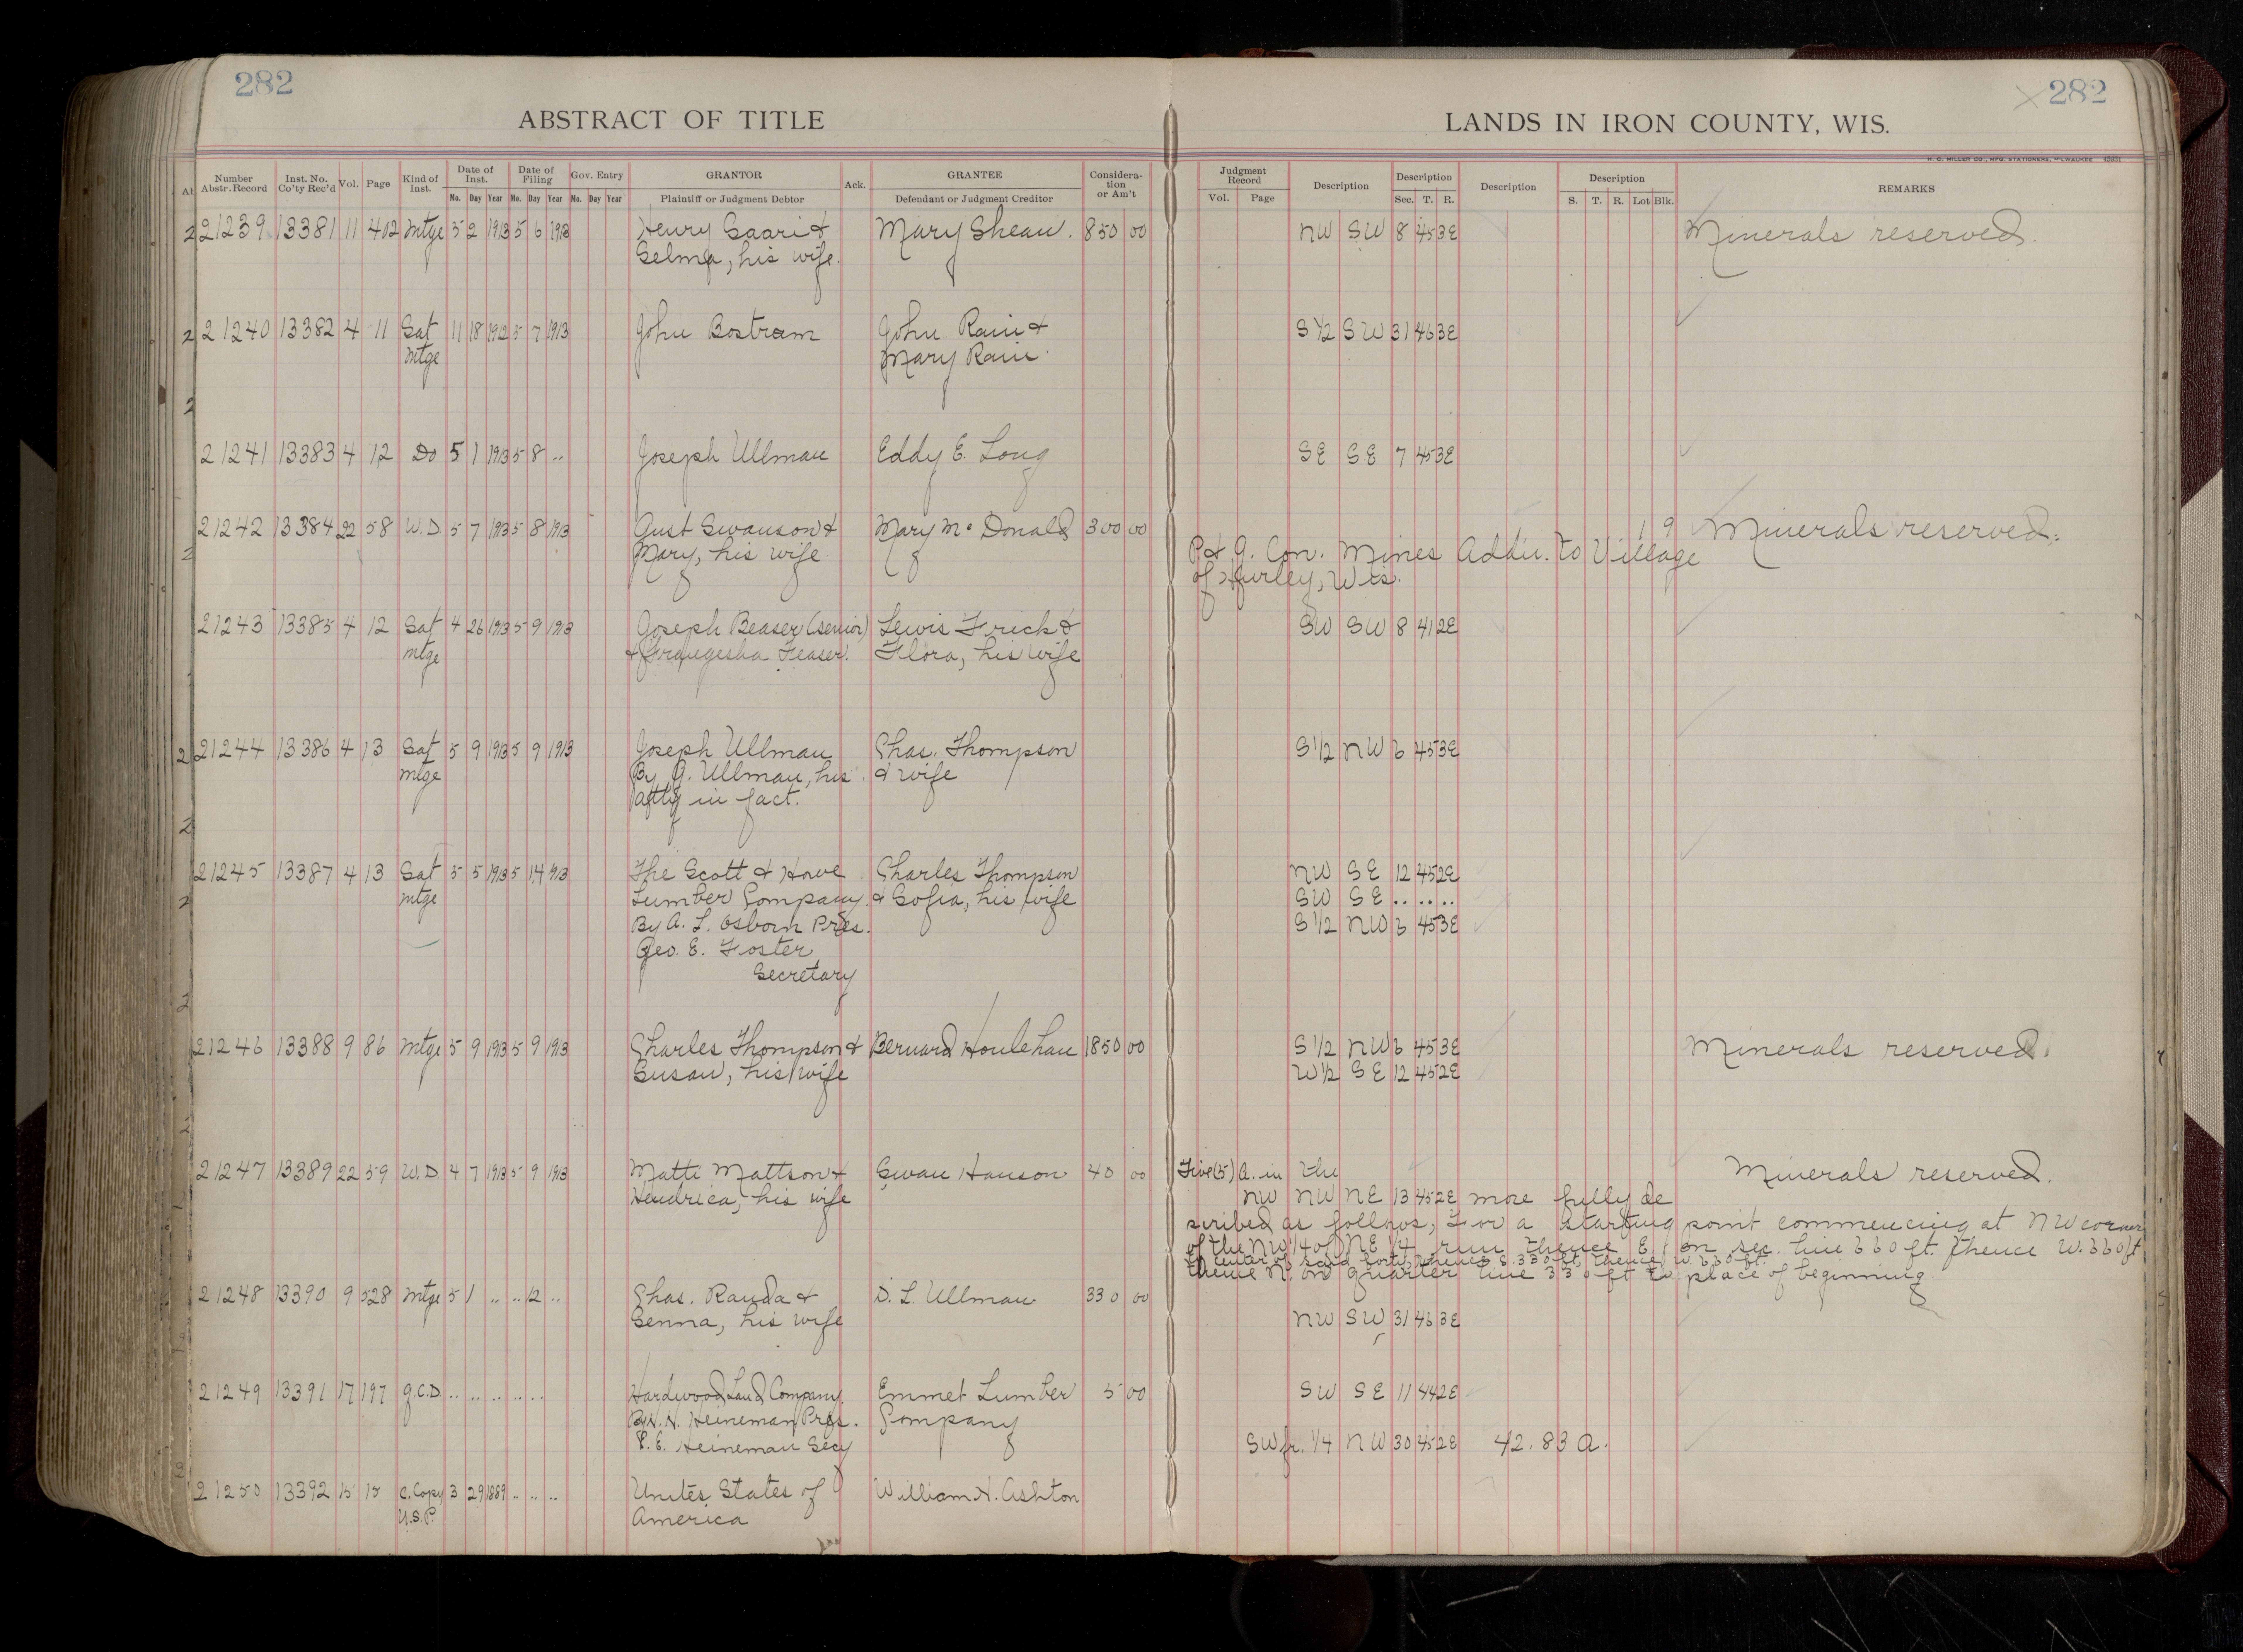 282
282
ABSTRACT OF TITLE
LANDS IN IRON COUNTY, WIS.
H. C. MILLER CO., MFG. STATIONERS, MILWAUKEE
Number Abstr. Record Inst. No. Co'ty Rec'd Vol. Page Kind of Inst. Date of Inst. Date of Filing Gov. Entry GRANTOR Ack. GRANTEE Consideration or Am't Judgment Record Description Description Description Description REMARKS
No. Day Year No. Day Year No. Day Year Plaintiff or Judgment Debtor Defendant or Judgment Creditor Vol. Page Sec. T. R. S. T. R. Lot Blk.
21239 13381 11 402 Mtge 5 2 1913 5 6 1913 Henry Saari & Mary Shean. 850 00 NW SW 8 45 3E Minerals reserved.
Selma, his wife.
21240 13382 4 11 Sat 11 18 1912 5 7 1913 John Bostrom John Rain & S 1/2 SW 31 46 3E
Mtge Mary Rain.
21241 13383 4 12 Do 5 1 1913 5 8 .. Joseph Ullman Eddy E. Long SE SE 7 45 3E
21242 13384 22 58 W.D. 5 7 1913 5 8 1913 Gust Swanson & Mary McDonald 300 00 1 9 Minerals reserved.
Mary, his wife P. & G. Con. Mines Addn. to Village
of Hurley, Wis.
21243 13385 4 12 Sat 4 26 1913 5 9 1913 Joseph Beaser (senior) Lewis Frick & SW SW 8 41 2E
Mtge Flora, his wife
21244 13386 4 13 Sat 5 9 1913 5 9 1913 Joseph Ullman Chas. Thompson S 1/2 NW 6 45 3E
Mtge By J. Ullman, his & wife
atty in fact.
21245 13387 4 13 Sat 5 5 1913 5 14 1913 The Scott & Howe Charles Thompson NW SE 12 45 2E
Mtge Lumber Company & Sofia, his wife SW SE .. .. ..
By A. L. Osborn Pres. S 1/2 NW 6 45 3E
Geo. E. Foster
Secretary
21246 13388 9 86 Mtge 5 9 1913 5 9 1913 Charles Thompson & Bernard Houlehan 1850 00 S 1/2 NW 6 45 3E Minerals reserved.
Susan, his wife W 1/2 SE 12 45 2E
21247 13389 22 59 W.D. 4 7 1913 5 9 1913 Matti Mattson & Swan Hanson 40 00 Five (5) A. in the Minerals reserved.
Hendrica, his wife NW NW NE 13 45 2E more fully de
scribed as follows, For a starting point commencing at NW corner
of the NW 1/4 of NE 1/4 run thence E. on sec. line 660 ft. thence W. 660 ft
to center of said forty, thence S. 330 ft, thence W. 660 ft.
thence N. on quarter line 330 ft to place of beginning
21248 13390 9 528 Mtge 5 1 .. .. 12 .. Chas. Randa & D. L. Ullman 330 00
Senna, his wife NW SW 31 46 3E
21249 13391 17 197 Q.C.D. .. .. .. .. .. Hardwood Land Company. Emmet Lumber 5 00 SW SE 11 44 2E
By H. H. Heineman Pres. Company
Heineman Secy SW fr. 1/4 NW 30 45 2E 42.83 A.
21250 13392 15 15 C. Copy 3 29 1889 .. .. .. United States of William H. Ashton
U.S.P. America